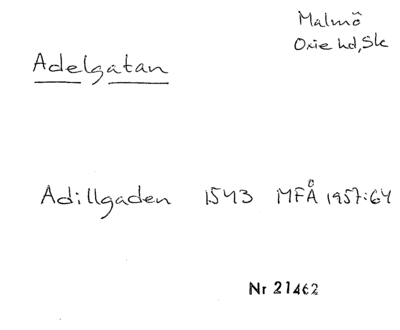 Malmö
Oxie hd, Sk
Adelgatan
Adillgaden 1543 MFÅ 1957:64
Nr 21462